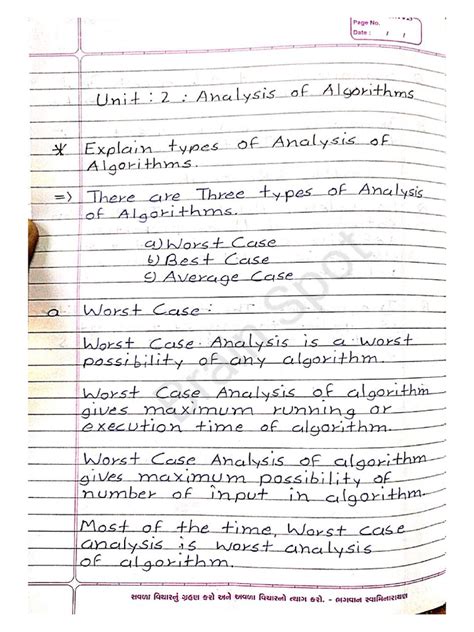 Page No.
Date : / /
Unit : 2 : Analysis of Algorithms
* Explain types of Analysis of
Algorithms.
=> There are Three types of Analysis
of Algorithms.
a) Worst Case
b) Best Case
c) Average Case
a Worst Case :
Worst Case Analysis is a worst
possibility of any algorithm.
Worst Case Analysis of algorithm
gives maximum running or
execution time of algorithm.
Worst Case Analysis of algorithm
gives maximum possibility of
number of input in algorithm.
Most of the time, Worst case
analysis is worst analysis
of algorithm.
સવળા વિચારનું ગ્રહણ કરો અને અવળા વિચારનો ત્યાગ કરો. - ભગવાન સ્વામિનારાયણ